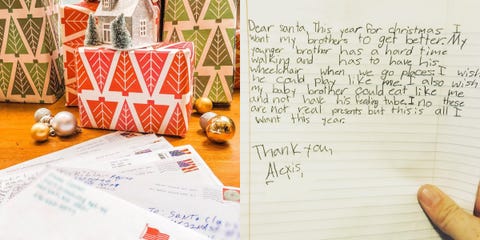 To Santa Claus
Dear santa, This year for christmas I
want my brothers to get better. My
younger brother has a hard time
walking and has to have his
wheelchair when we go places. I wish
he could play like me. I also wish
my baby brother could eat like me
and not have his feeding tube. I no these
are not real presents but this is all I
want this year.
Thank you,
Alexis,